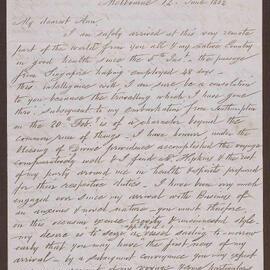 Melbourne 12 June 1852
My dearest Ann,
I am safely arrived at this very remote
part of the world from you all & my native Country
in good health since the 5th Inst. the passage
from Singapore having employed 48 days
this intelligence will I am sure be a consolation
to you because the travelling which I have gone
thro: subsequent to my Embarkation from Southampton
on the 20 Feby is of a character beyond the
common run of things. I have however, under the
blessing of Divine providence accomplished the voyage
comparatively well & I find Mr Hopkins & the rest
of my party around me in health & spirits prepared
for their respective duties. I have been very much
engaged ever since my arrival in the business of
an anxious & novel nature, you must therefore
on this occasion excuse brevity & unconnected style.
my desire is to seize a vessel sailing to-morrow
early that you may have the first news of my
arrival – by a subsequent conveyance you may expect
of my voyage